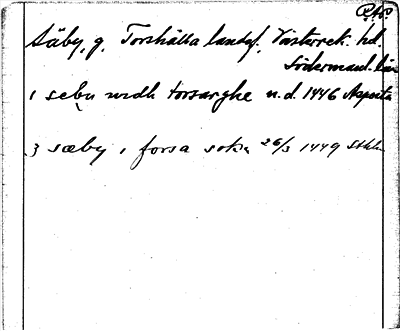 Säby, g. Torshälla landsf. Västerrek. hd.
Södermanl. län
i seby widh torsarghe u.d. 1446
3 sæby i forsa sokn 26/3 1449 Sthlm